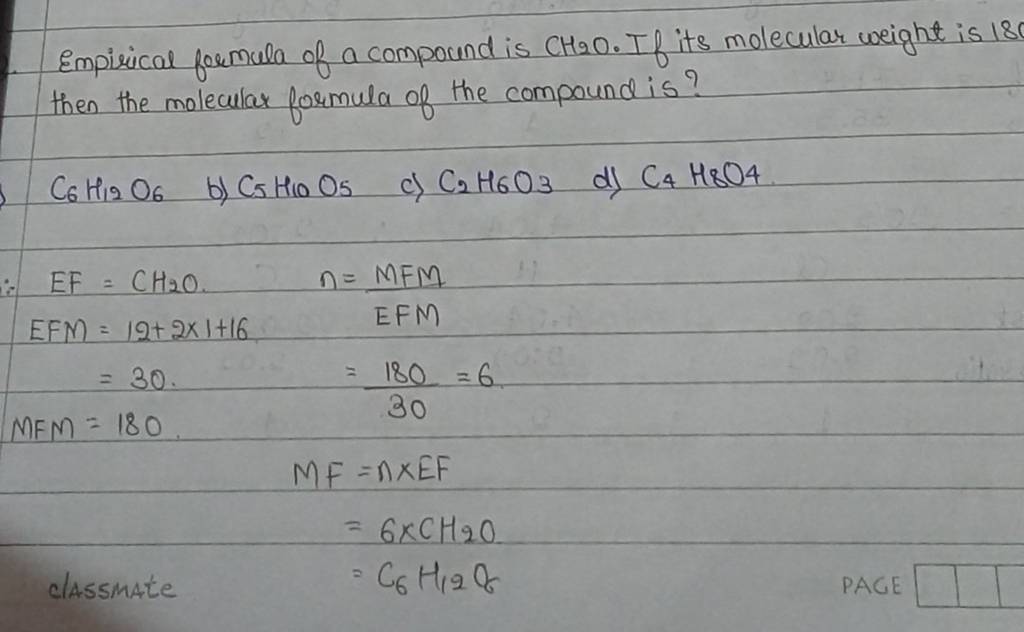 Empirical formula of a compound is CH2O. If its molecular weight is 180
then the molecular formula of the compound is?
C6H12O6 b) C5H10O5 c) C2H6O3 d) C4H8O4.
EF = CH2O. n = MFM
EFM
EFM = 12+2x1+16
= 30. = 180 = 6.
30
MFM = 180.
MF = n x EF
= 6xCH2O
= C6H12O6
classmate PAGE